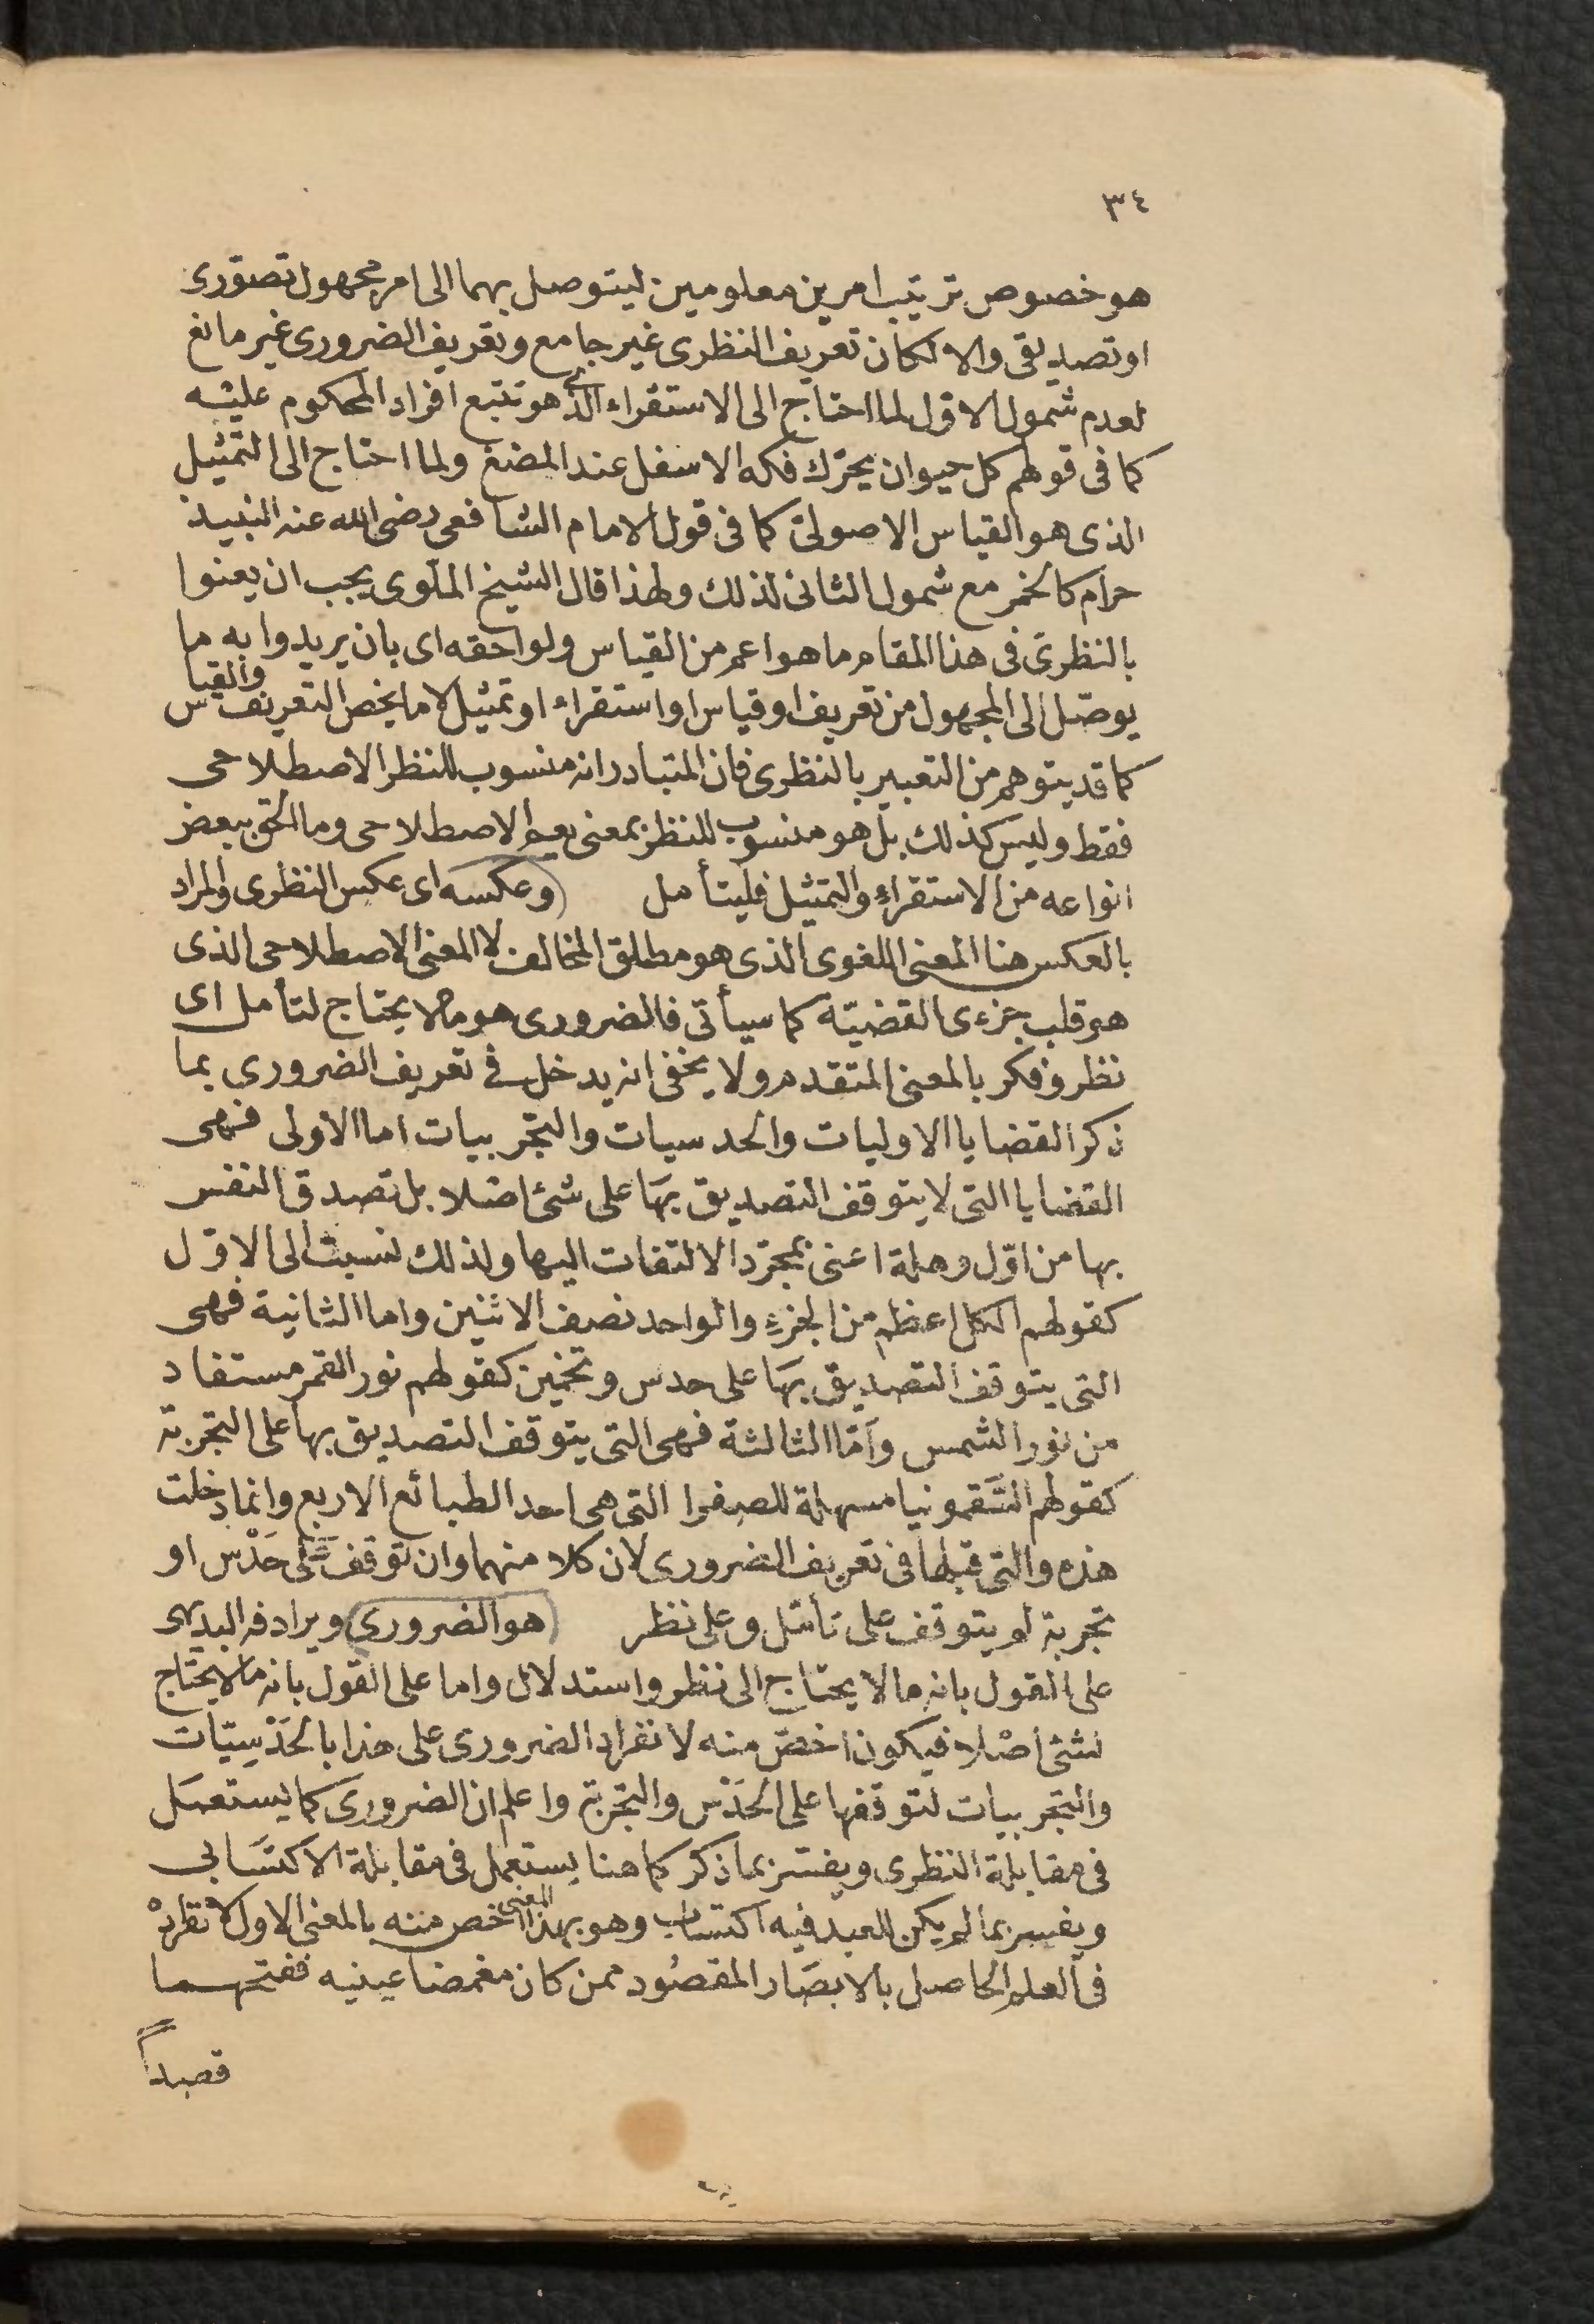 ٣٤
هو خصوص ترتيب امرين معلومين ليتوصل بهما الى امر مجهول تصوّرى
او تصديقى والا لكان تعريف النظرى غير جامع وتعريف الضرورى غير مانع
لعدم شمول الاوّل لما احتاج الى الاستقراء الذى هو تتبع افراد المحكوم عليه
كما فى قولهم كل حيوان يحرّك فكه الاسفل عند المضغ ولما احتاج الى التمثيل
الذى هو القياس الاصولىّ كما فى قول الامام الشافعى رضى الله عنه النبيذ
حرام كالخمر مع شمول الثانى لذلك ولهذا قال الشيخ الملّوى يجب ان يعنوا
بالنظرىّ فى هذا المقام ما هو اعم من القياس ولواحقه اى بان يريدوا به ما
يوصّل الى المجهول من تعريف او قياس او استقراء او تمثيل لا ما يخص التعريف والقياس
كما قد يتوهم من التعبير بالنظرى فان المتبادر انه منسوب للنظر الاصطلاحى
فقط وليس كذلك بل هو منسوب للنظر بمعنى يعم الاصطلاحى وما الحق ببعض
انواعه من الاستقراء والتمثيل فليتأمل (وعكسه اى عكس النظرى والمراد
بالعكس هنا المعنى اللغوى الذى هو مطلق المخالف لا المعنى الاصطلاحى الذى
هو قلب جزءى القضيّة كما سيأتى فالضرورى هو ما لا يحتاج لتأمل اى
نظر وفكر بالمعنى المتقدم ولا يخفى انه يدخل فى تعريف الضرورى بما
ذكر القضايا الاوليات والحدسيات والتجربيات اما الاولى فهى
القضايا التى لا يتوقف التصديق بهَا على شئ اصْلا بل تصدق النفس
بها من اوّل وهلة اعنى بمجرّد الالتفات اليها ولذلك نسبت الى الاوّل
كقولهم الكل اعظم من الجزء والواحد نصف الاثنين واما الثانية فهى
التى يتوقف التصديق بهَا على حدس وتخمين كقولهم نور القمر مستفاد
من نور الشمس وأمّا الثالثة فهى التى يتوقف التصديق بها على التجربة
كقولهم السَّقمونيا مسهلة للصفرا التى هى احد الطبائع الاربع وانما دخلت
هذه والتى قبلها فى تعريف الضرورى لان كلا منهما وان توقف على حَدْس او
تجربة لم يتوقف على تأمّل وعلى نظر (هو الضرورى) ويرادفه البديهى
على القول بانه ما لا يحتاج الى نظر واستدلال واما على القول بانه ما لا يحتاج
لشئ اصْلا فيكون اخصّ منه لانفراد الضرورى على هذا بالحَدْسِيّات
والتجربيات لتوقفها على الحَدْس والتجربة واعلم ان الضرورى كما يستعمَل
فى مقابلة النظرى ويفسّر بما ذكر كما هنا يستعمل فى مقابلة الاكتسَابى
ويفسر بما لم يكن للعبد فيه اكتساب وهو بهذا المعنى اخص منه بالمعنى الاول لانفراده
فى العلم الحاصل بالابصَار المقصُود ممن كان مغمضا عينيه ففتحهما
قصداً